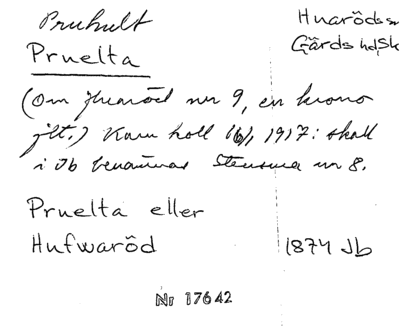 Pruhult
Huaröds sn
Gärds hd, Sk
Pruelta
(Om Huaröd nr 9, en krono
jlt.) Kam koll 16/1 1917: skall
i Jb benämnas Stensma nr 8.
Pruelta eller
Hufwaröd
1874 Jb
Nr 17642